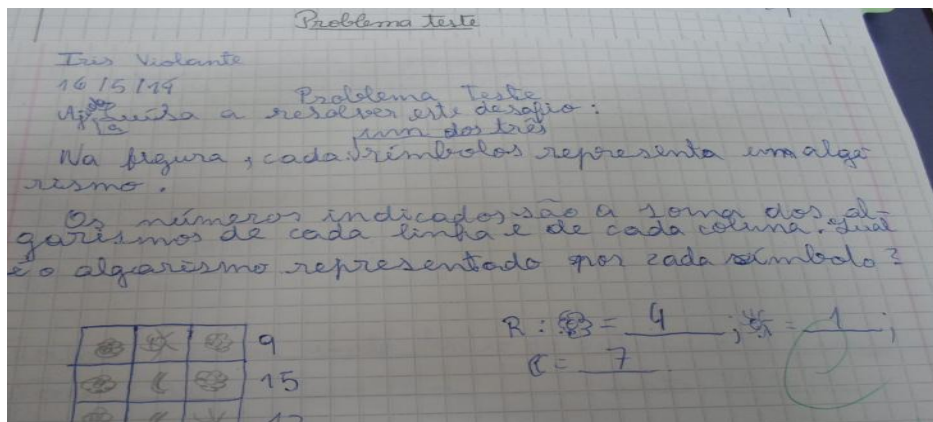 Problema teste
Iris Violante
16/5/19
Problema Teste
Ajuda a Luísa a resolver este desafio:
um dos três
Na figura, cada símbolos representa um alga
rismo.
Os números indicados são a soma dos al-
garismos de cada linha e de cada coluna. Qual
é o algarismo representado por cada símbolo?
R: = 4 ; = 1 ;
= 7
9
15
12